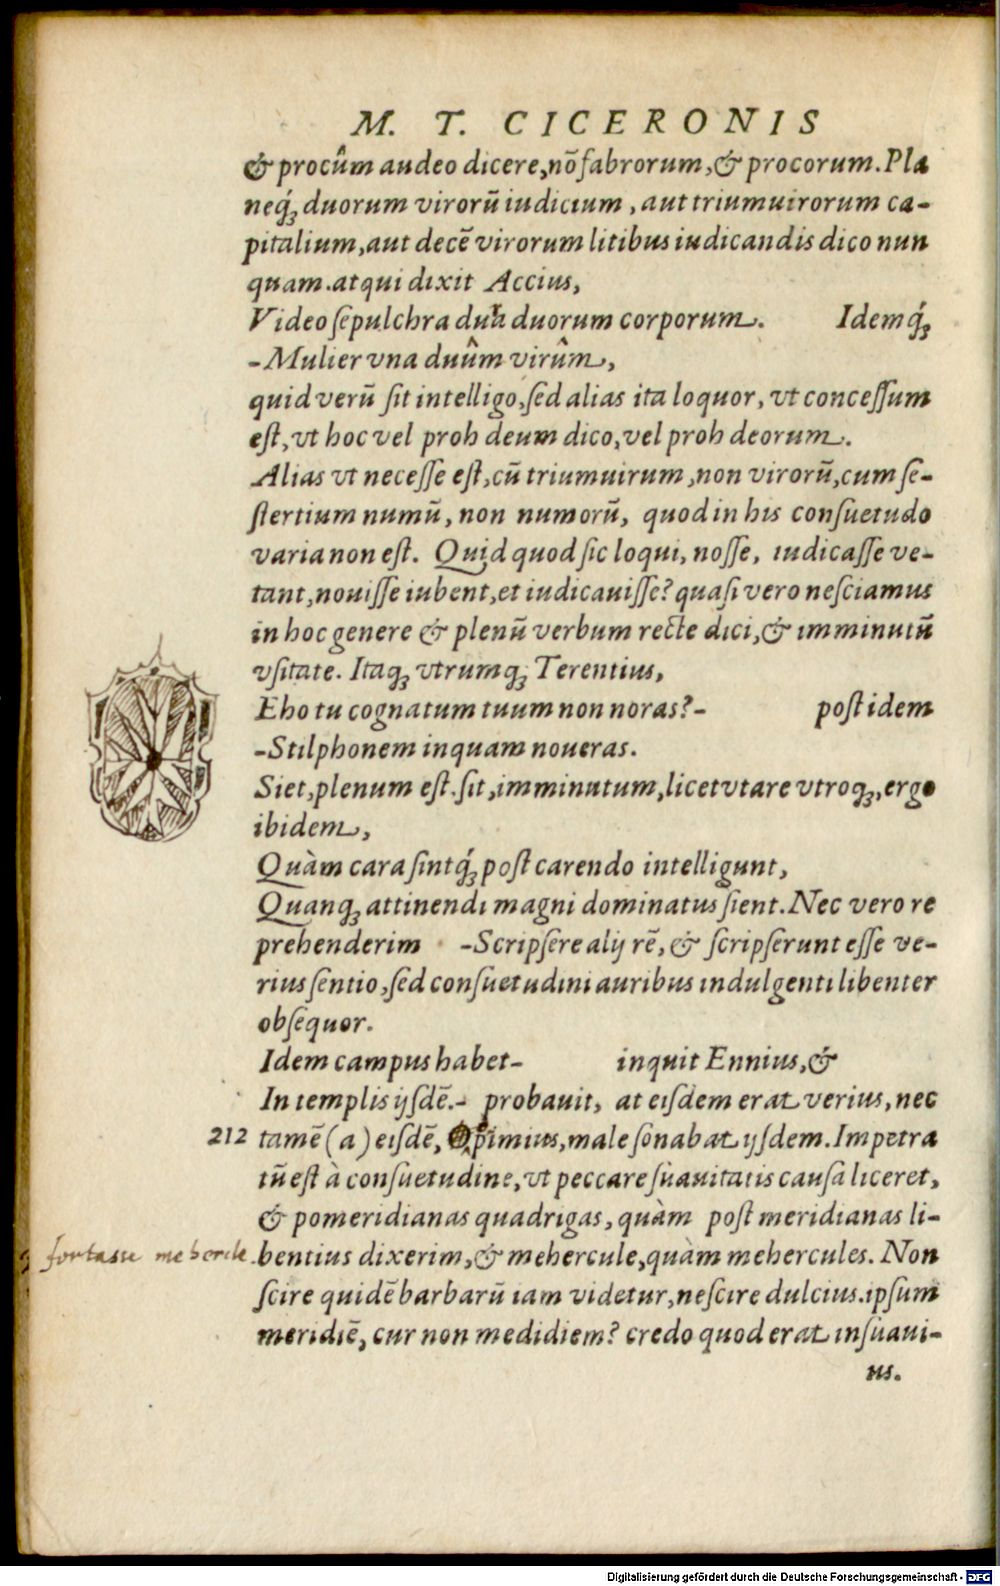 M. T. CICERONIS
& procûm audeo dicere, nō fabrorum, & procorum. Pla
neq́ꝫ duorum virorū iudicium, aut triumuirorum ca-
pitalium, aut decē virorum litibus iudicandis dico nun
quam. atqui dixit Accius,
Video sepulchra dua duorum corporum. Idemq́ꝫ
-Mulier vna duûm virûm,
quid verū sit intelligo, sed alias ita loquor, vt concessum
est, vt hoc vel proh deum dico, vel proh deorum.
Alias vt necesse est, cū triumuirum, non virorū, cum se-
stertium numū, non numorū, quod in his consuetudo
varia non est. Quid quod sic loqui, nosse, iudicasse ve-
tant, nouisse iubent, et iudicauisse? quasi vero nesciamus
in hoc genere & plenū verbum recte dici, & imminutū
vsitate. Itaqꝫ vtrumqꝫ Terentius,
Eho tu cognatum tuum non noras?- post idem
-Stilphonem inquam noueras.
Siet, plenum est. sit, imminutum, licet vtare vtroqꝫ, ergo
ibidem,
Quàm cara sintq́ꝫ post carendo intelligunt,
Quanqꝫ attinendi magni dominatus sient. Nec vero re
prehenderim -Scripsere alij rē, & scripserunt esse ve-
rius sentio, sed consuetudini auribus indulgenti libenter
obsequor.
Idem campus habet- inquit Ennius, &
In templis ijsdē.- probauit, at eisdem erat verius, nec
212 tamē (a) eisdē, Opimius, male sonabat ijsdem. Impetra
tū est à consuetudine, vt peccare suauitatis causa liceret,
& pomeridianas quadrigas, quàm post meridianas li-
fortasse mehercle bentius dixerim, & mehercule, quàm mehercules. Non
scire quidē barbarū iam videtur, nescire dulcius. ipsum
meridiē, cur non medidiem? credo quod erat insuaui-
us.
Digitalisierung gefördert durch die Deutsche Forschungsgemeinschaft - DFG